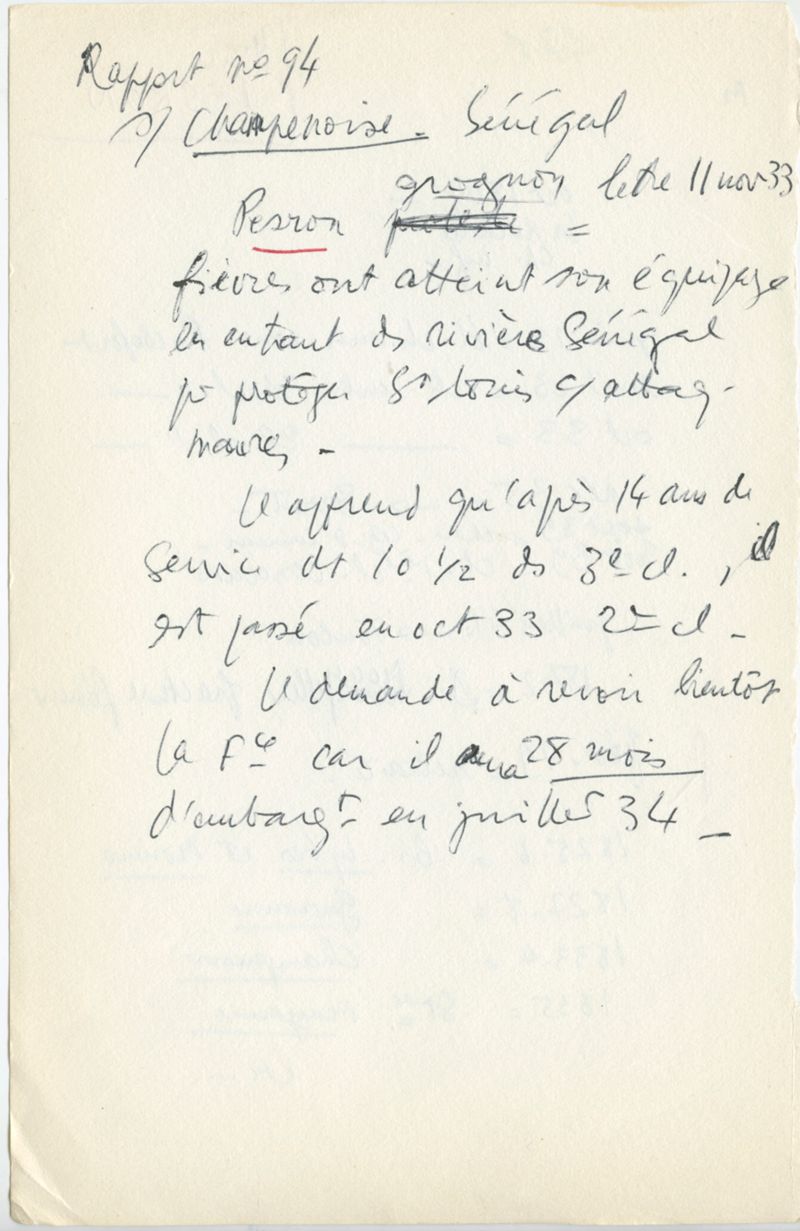 Rapport no 94
s/ Champenoise - Sénégal
grognon lettre 11 nov 33
Pesron =
fièvres ont atteint son équipage
en entrant ds rivière Sénégal
pr protéger St Louis c/ attaq.
maures -
Il apprend qu'après 14 ans de
Service dt 10 1/2 ds 3e cl. , il
est passé en oct 33 2e cl -
Il demande à revoir bientôt
la Fce car il aura 28 mois
d'embargt en juillet 34 -